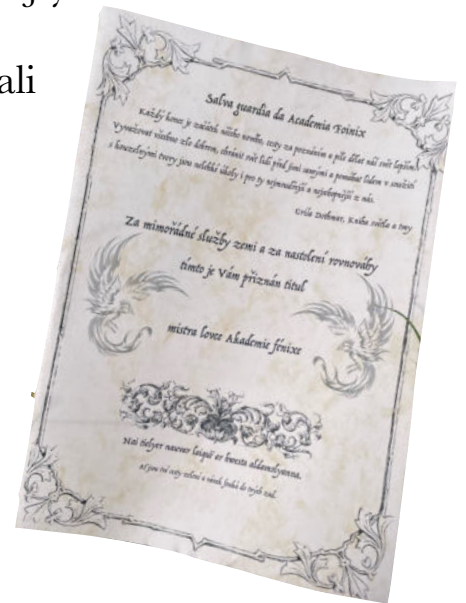 ali
Salva guardia da Academia Foinix
Každý konec je začátek něčeho nového, cesty za poznáním a píle dělat náš svět lepším.
Vyvažovat všechno zlo dobrem, chránit svět lidí před jimi samými a pomáhat lidem v soužití
s kouzelnými tvory jsou nelehké úkoly i pro ty nejmoudřejší a nejschopnější z nás.
Kniha světla a tmy
Za mimořádné služby zemi a za nastolení rovnováhy
tímto je Vám přiznán titul
mistra lovce Akademie fénixe
Nai tielyar nauvar laiquë ar